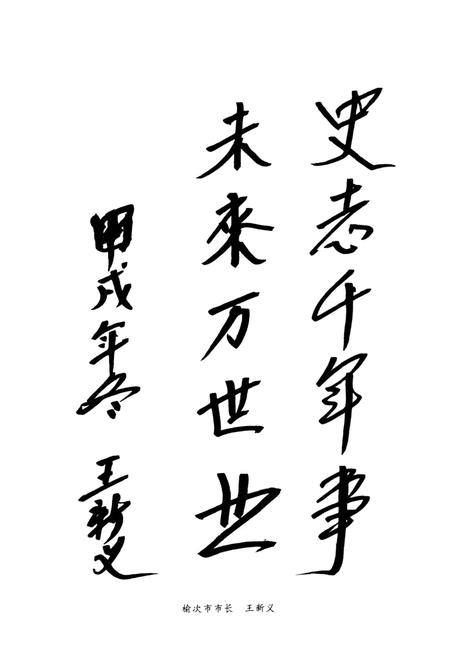 史志千年事
未來万世
甲戌年冬 王新义
榆次市市长 王新义